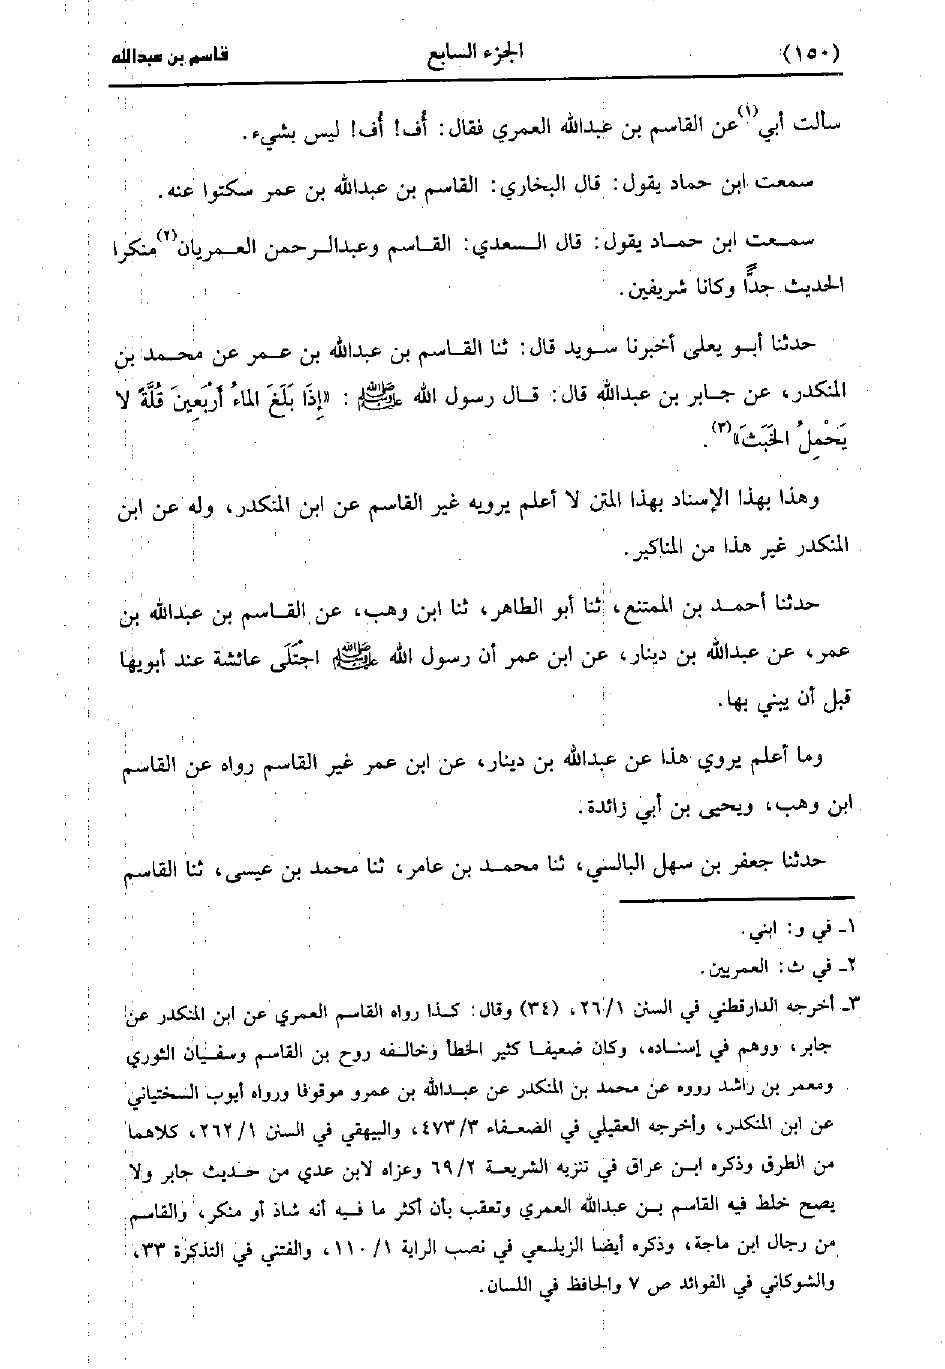 (١٥٠) الجزء السابع قاسم بن عبدالله
سألت أبي(١) عن القاسم بن عبدالله العمري فقال: أُف! أُف! ليس بشيء.
سمعت ابن حماد يقول: قال البخاري: القاسم بن عبدالله بن عمر سكتوا عنه.
سمعت ابن حماد يقول: قال السعدي: القاسم وعبدالرحمن العمريان(٢) منكرا
الحديث جدًّا وكانا شريفين.
حدثنا أبو يعلى أخبرنا سويد قال: ثنا القاسم بن عبدالله بن عمر عن محمد بن
المنكدر، عن جابر بن عبدالله قال: قال رسول الله ﷺ: «إِذَا بَلَغَ الماءُ أَرْبَعِينَ قُلَّةً لا
يَحْمِلُ الخَبَثَ»(٣).
وهذا بهذا الإسناد بهذا المتن لا أعلم يرويه غير القاسم عن ابن المنكدر، وله عن ابن
المنكدر غير هذا من المناكير.
حدثنا أحمد بن الممتنع، ثنا أبو الطاهر، ثنا ابن وهب، عن القاسم بن عبدالله بن
عمر، عن عبدالله بن دينار، عن ابن عمر أن رسول الله ﷺ اجتَلَى عائشة عند أبويها
قبل أن يبني بها.
وما أعلم يروي هذا عن عبدالله بن دينار، عن ابن عمر غير القاسم رواه عن القاسم
ابن وهب، ويحيى بن أبي زائدة.
حدثنا جعفر بن سهل البالسي، ثنا محمد بن عامر، ثنا محمد بن عيسى، ثنا القاسم
١ـ في و: ابني.
٢ـ في ث: العمريين.
٣ـ أخرجه الدارقطني في السنن ٢٦/١، (٣٤) وقال: كذا رواه القاسم العمري عن ابن المنكدر عن
جابر، ووهم في إسناده، وكان ضعيفا كثير الخطأ وخالفه روح بن القاسم وسفيان الثوري
ومعمر بن راشد رووه عن محمد بن المنكدر عن عبدالله بن عمرو موقوفا ورواه أيوب السختياني
عن ابن المنكدر، وأخرجه العقيلي في الضعفاء ٤٧٣/٣، والبيهقي في السنن ٢٦٢/١، كلاهما
من الطرق وذكره ابن عراق في تنزيه الشريعة ٦٩/٢ وعزاه لابن عدي من حديث جابر ولا
يصح خلط فيه القاسم بن عبدالله العمري وتعقب بأن أكثر ما فيه أنه شاذ أو منكر، والقاسم
من رجال ابن ماجة، وذكره أيضا الزيلعي في نصب الراية ١١٠/١، والفتني في التذكرة ٣٣،
والشوكاني في الفوائد ص ٧ والحافظ في اللسان.